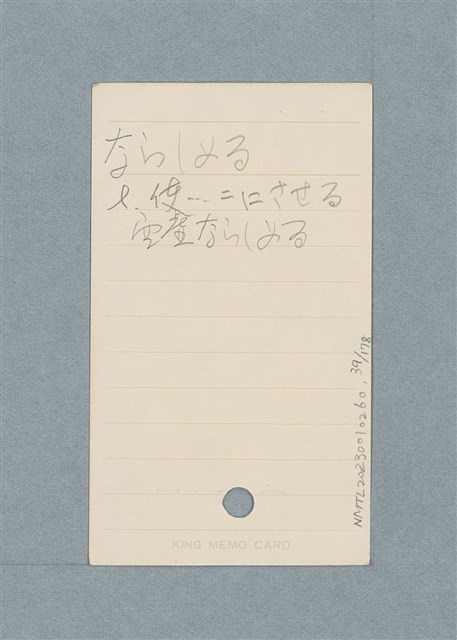 ならしめる
使……ニにさせる
ならしめる
KING MEMO CARD
NMTL20230010260, 39/178